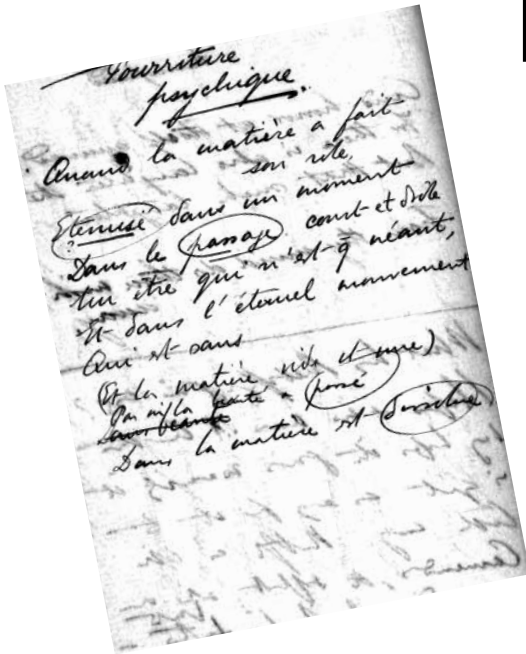 Pourriture
psychique.
Quand la matière a fait
son rôle,
Eternisé dans un moment
?
Dans le passage court et drôle
d'un être qui n'est q néant,
Et dans l'éternel mouvement
Qui est sans
(Et la matière vide et nue)
Par la beauté a passé
Sans beauté
Dans la matière est dissolue